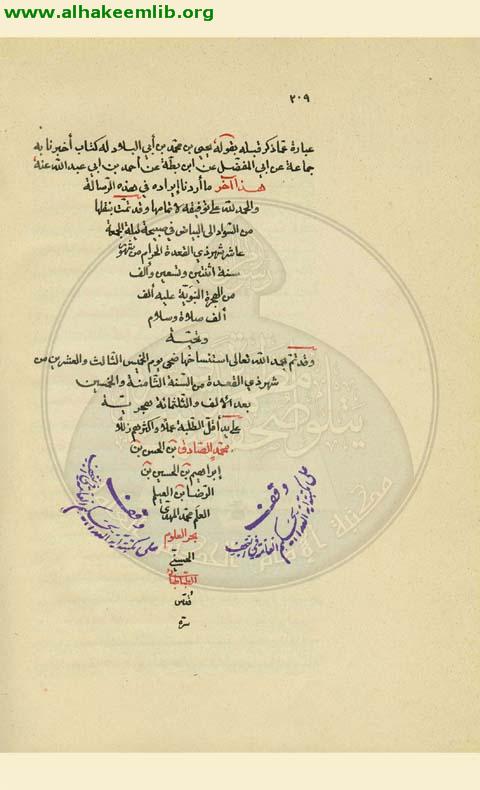 www.alhakeemlib.org
٢٠٩
عبارة عما ذكر قبله بقوله يحيى بن محمد بن أبي البلاد له كتاب أخبرنا به
جماعة عن ابي المفضل عن ابن بطة عن أحمد بن ابي عبدالله عنه
هذا آخر ما أردنا إيراده في هذه الرسالة
والحمد لله على توفيقه لاتمامها وقد تمت بنقلها
من السواد الى البياض في صبيحة ليلة الجمعة
عاشر شهر ذي القعدة الحرام من شهور
سنة اثنتين وتسعين وألف
من الهجرة النبوية عليه ألف
ألف صلاة وسلام
وتحية
وقد تم بحمد الله تعالى استنساخها ضحى يوم الخميس الثالث والعشرين من
شهر ذي القعدة من السنة الثامنة والخمسين
بعد الألف والثلثمائة هجرية
على يد أقل الطلبة عملا وأكثرهم زللا
محمد الصادق بن الحسن بن
إبراهيم بن الحسين بن
الرضا بن العيلم
العلم محمد المهدي
بحر العلوم
الحسني
الطباطبائي
قدس
سره
وقف
على مكتبة آية الله الحكيم العامة في النجف
وقف
على مكتبة آية الله الحكيم العامة في النجف